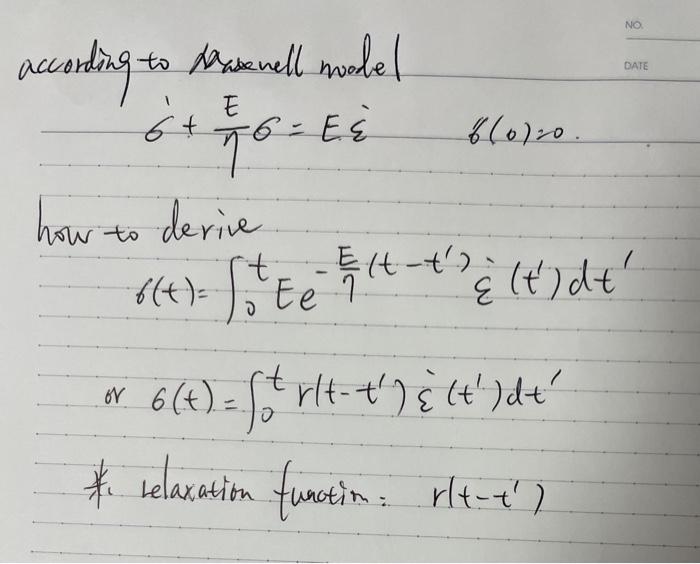 NO.
DATE
according to Maxwell model
σ̇ + E/η σ = E ε̇    σ(0)=0.
how to derive
σ(t) = ∫₀ᵗ E e^(-E/η (t-t')) ε̇ (t') dt'
or σ(t) = ∫₀ᵗ r(t-t') ε̇ (t') dt'
*. relaxation function: r(t-t')